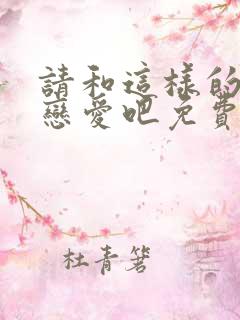 請和這樣的
戀愛吧免費
杜青箬